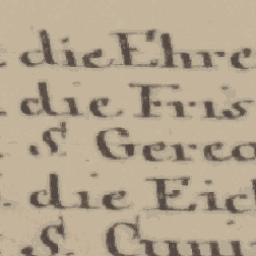 die Ehre
die Fris
S. Gereo
die Eich
S. Cuni